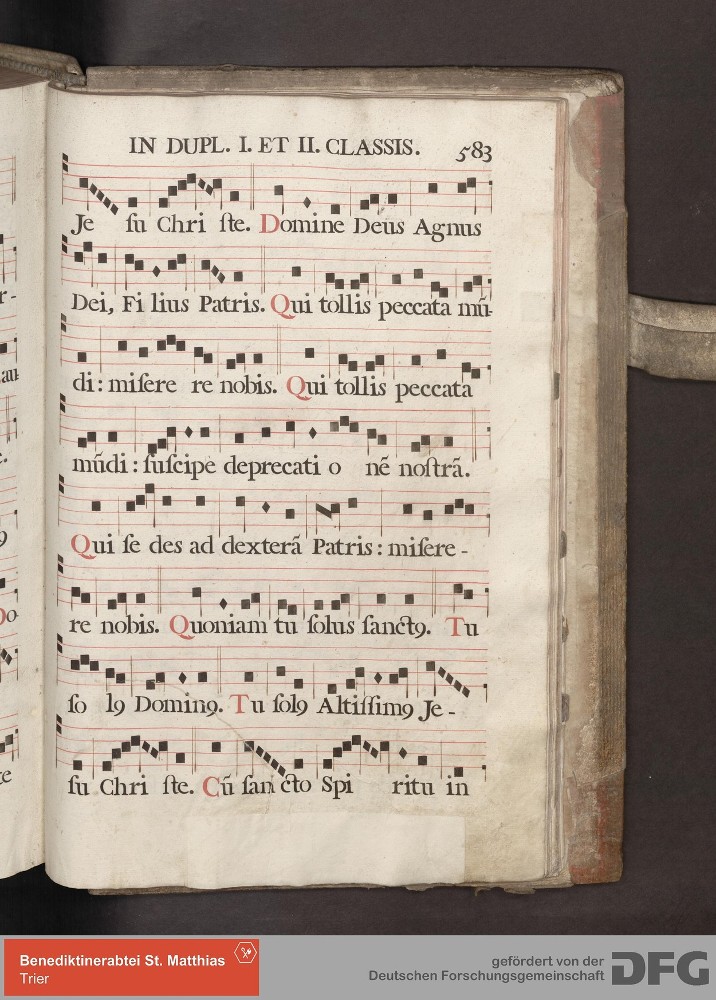 IN DUPL. I. ET II. CLASSIS. 583
Je ſu Chri ſte. Domine Deus Agnus
Dei, Fi lius Patris. Qui tollis peccata mū-
di: miſere re nobis. Qui tollis peccata
mūdi: ſuſcipe deprecati o nē noſtrā.
Qui ſe des ad dexterā Patris: miſere-
re nobis. Quoniam tu ſolus ſanctꝰ. Tu
ſo lꝰ Dominꝰ. Tu ſolꝰ Altiſſimꝰ Je-
ſu Chri ſte. Cū ſan cto Spi ritu in
Benediktinerabtei St. Matthias
Trier
gefördert von der
Deutschen Forschungsgemeinschaft
DFG